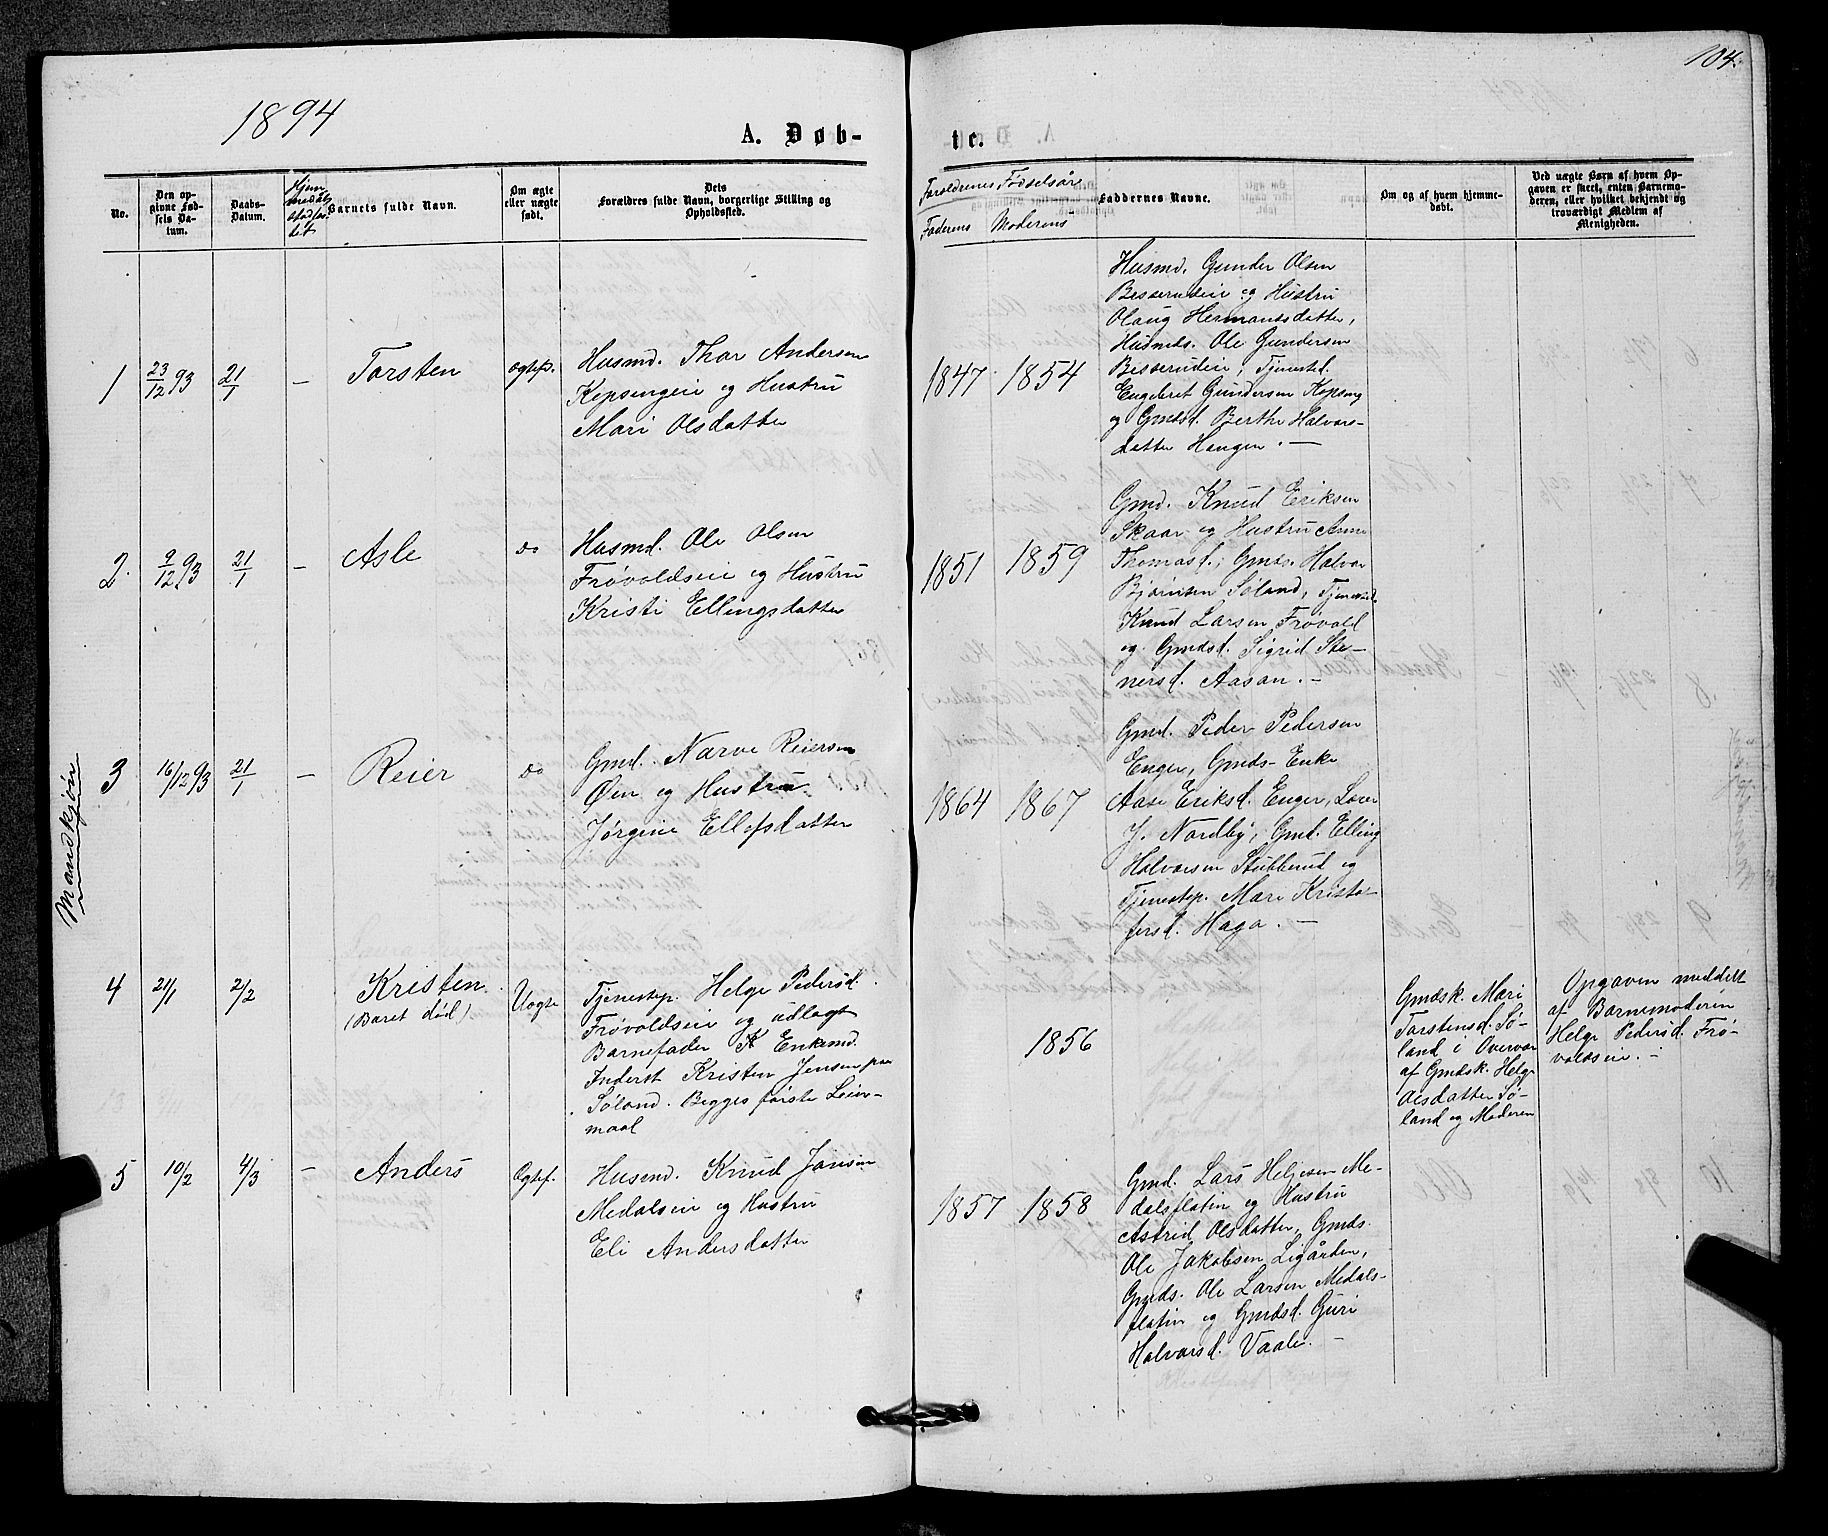 104.
1894
A. Døb-
te.
No.
Den op-
givne Fød-
sels Da-
tum.
Daabs-
Datum.
Barnets fulde Navn.
Om ægte
eller uægte
født.
Dets
Forældres fulde Navn, borgerlige Stilling og
Opholdssted.
Forældrenes Fødselsår
Faderens Moderens
Faddernes Navne.
Om og af hvem hjemme-
døbt.
Ved uægte Børn af hvem Op-
gaven er skeet, enten Barnemo-
deren, eller hvilket bekjendt og
troværdigt Medlem af
Menigheden.
Mandkjøn
1
23/12 93
21/1
–
Torsten
Ægtef.
Husmd. Thor Andersen
Kopsengeie og Hustru
Mari Olsdatter
1847. 1854
Husmd. Gunder Olsen
Besserudeie og Hustru
Olaug Hermansdatter,
Husmds. Ole Gundersen
Besserudeie, Tjenestd.
Engebret Gundersen Kopseng
og Gmdsd. Berthe Halvors-
datter Haugen. –
2.
9/12 93
21/1
–
Asle
do
Husmd. Ole Olsen
Frøvoldseie og Hustru
Kristi Ellingsdatter
1851 1859
Gmd. Knud Eriksen
Skaar og Hustru Anne
Thomasd., Gmds. Halvor
Bjørnsen Søland, Tjenestd.
Knud Larsen Frøvold
og Gmdsd. Sigrid Ste-
nersd. Aasan. –
3
16/12 93
21/1
–
Reier
do
Gmd. Narve Reiersen
Øen og Hustru
Jørgine Ellefsdatter
1864 1867
Gmd. Peder Pedersen
Enger, Gmds- Enke
Aase Eriksd. Enger, Lærer
J. Nordby, Gmd. Elling
Halvorsen Stubberud og
Tjenestep. Mari Kristo-
fersd. Haga. –
4
21/1
2/2
Kristen
(Baret død)
Uægte
Tjenestep. Helge Pedersd.
Frøvoldseie og udlagt
Barnefader Enkemd.
Inderst Kristen Jensen paa
Søland. Begges første Leier-
maal
1856
Gmdsk. Mari
Torstensd. Sø-
land i Overvær
af Gmdsk. Helge
Olsdatter Sø-
land og Moderen
Opgaven meddelt
af Barnemoderen
Helge Pedersd. Frø-
voldseie. –
5
10/2
4/3
–
Anders
Ægtef.
Husmd. Knud Jonsen
Medalseie og Hustru
Eli Andersdatter
1857 1858
Gmd. Lars Helgesen Me-
dalsflatin og Hustru
Astrid Olsdatter, Gmds.
Ole Jakobsen Ligården,
Gmds. Ole Larsen Medals-
flatin og Gmdsd. Guri
Halvorsd. Vaale. –